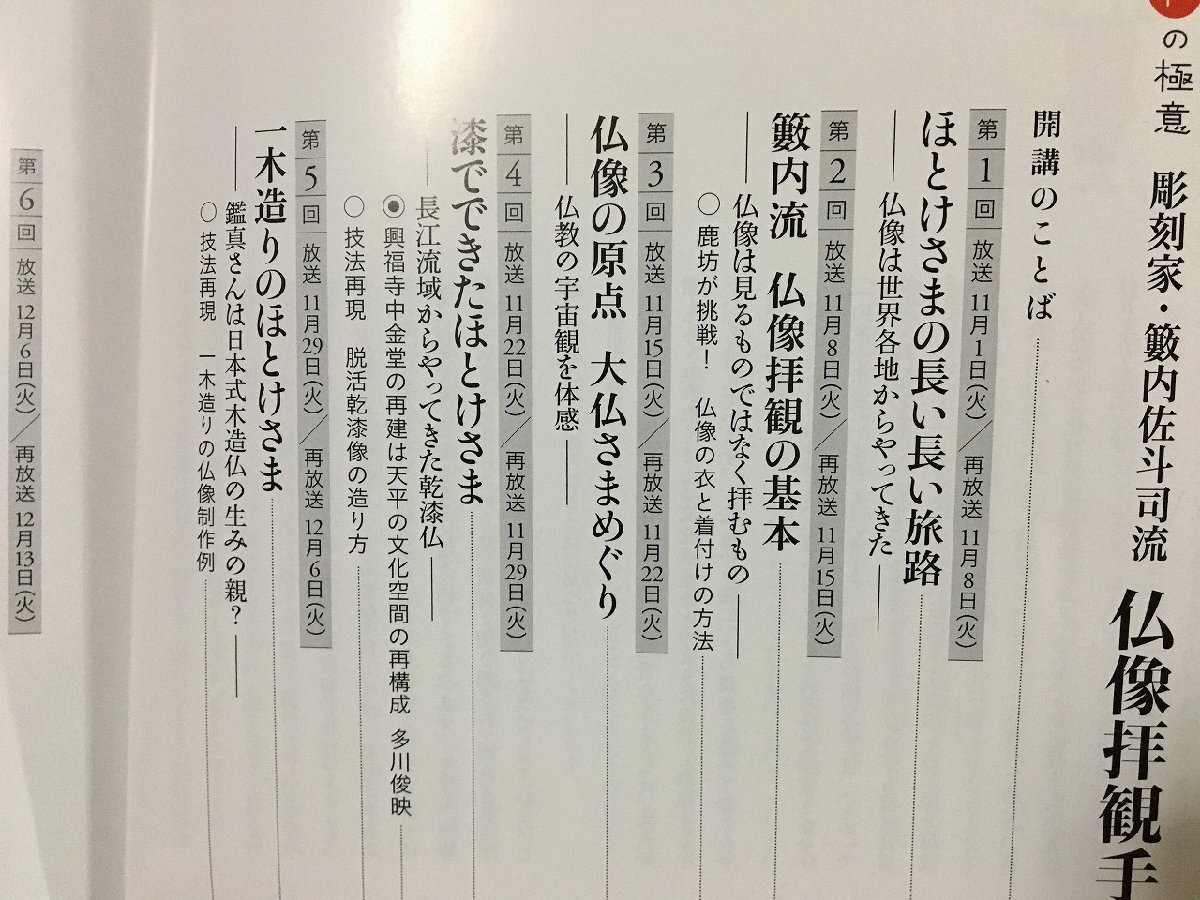 の極意
彫刻家・籔内佐斗司流 仏像拝観手
開講のことば
第1回 放送 11月1日(火)／再放送 11月8日(火)
ほとけさまの長い長い旅路
――仏像は世界各地からやってきた――
第2回 放送 11月8日(火)／再放送 11月15日(火)
籔内流 仏像拝観の基本
――仏像は見るものではなく拝むもの――
○鹿坊が挑戦！ 仏像の衣と着付けの方法
第3回 放送 11月15日(火)／再放送 11月22日(火)
仏像の原点 大仏さまめぐり
――仏教の宇宙観を体感――
第4回 放送 11月22日(火)／再放送 11月29日(火)
漆でできたほとけさま
――長江流域からやってきた乾漆仏――
◉興福寺中金堂の再建は天平の文化空間の再構成 多川俊映
○技法再現 脱活乾漆像の造り方
第5回 放送 11月29日(火)／再放送 12月6日(火)
一木造りのほとけさま
――鑑真さんは日本式木造仏の生みの親？――
○技法再現 一木造りの仏像制作例
第6回 放送 12月6日(火)／再放送 12月13日(火)